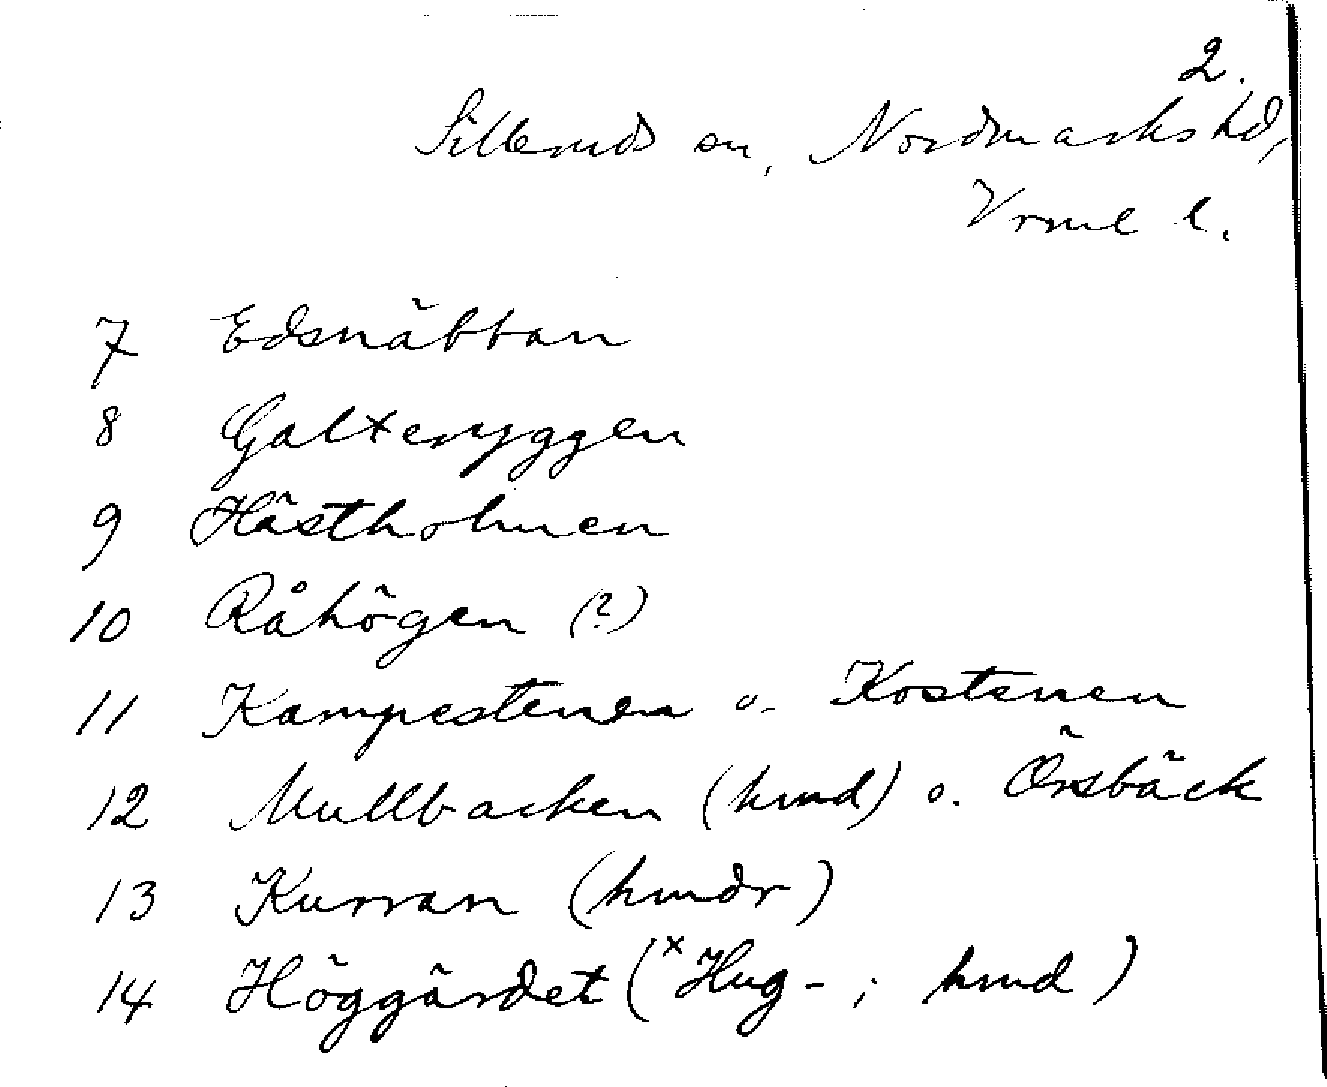 2.
Silleruds sn, Nordmarks hd,
Vrml l.
7 Edsnäbban
8 Galteryggen
9 Hästholmen
10 Råhögen (?)
11 Kampestenen o. Kostenen
12 Mullbacken (hmd) o. Örsbäck
13 Kurran (hmdr)
14 Höggärdet (×Hug- ; hmd)